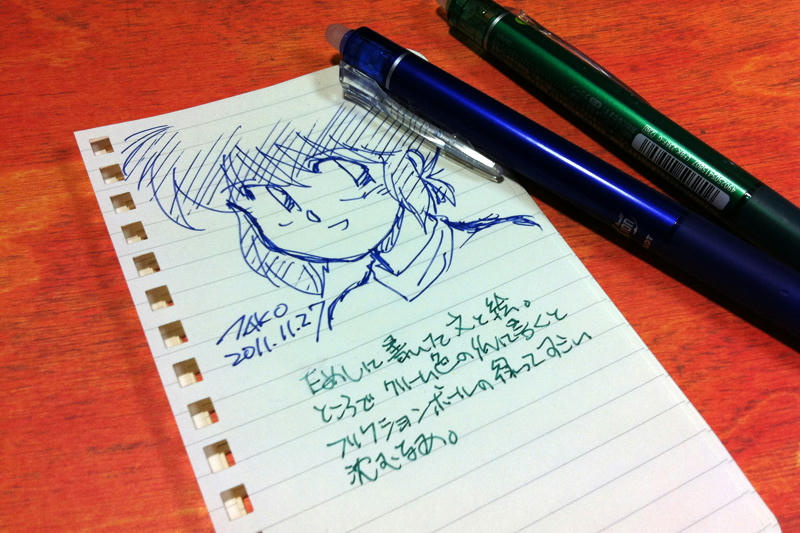 TAKO
2011.11.27
ためしに書いてた文と絵。
ところで クリーム色の紙に書くと
フリクションボールの線って すごい
沈むなぁ。